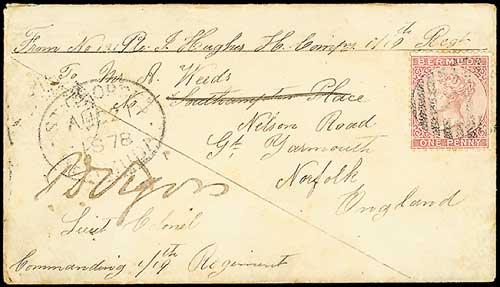 From No 1242 Pte J. Hughes H. Compy 1/19th Regt
To Mrs A. Weeds
Southampton Place
Nelson Road
Gt. Yarmouth
Norfolk
England
BERMUDA
ONE PENNY
ST GEORGE'S
1878
Lieut Colonel
Commanding 1/19th Regiment